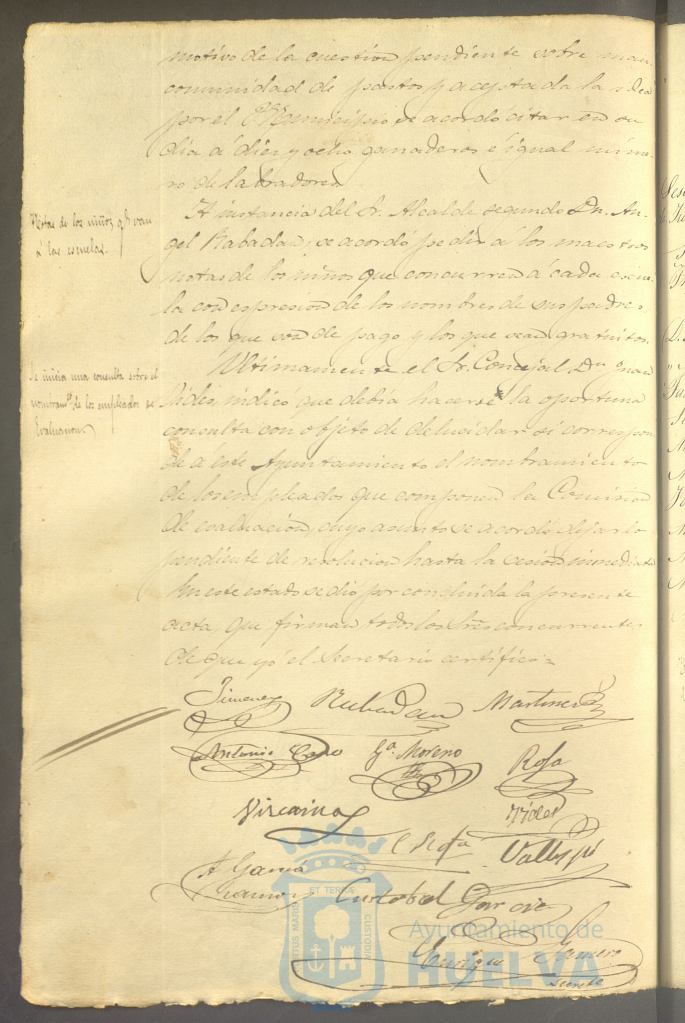 motivo de la cuestion pendiente sobre man-
comunidad de pastos y aceptada la idea
por el Municipio se acordó citar en su
dia á diez y ocho ganaderos é igual núme-
ro de labradores.
Notas de los niños q.e van
á las escuelas.
A instancia del Sr. Alcalde segundo Dn. An-
gel Rabadan, se acordó pedir á los maestros
notas de los niños que concurren á cada escue-
la con espresion de los nombres de sus padres,
de los que son de pago y los que sean gratuitos.
Se inicia una consulta sobre el
nombram.to de los empleados de
Evaluacion
Ultimamente el Sr. Concejal Dn. Juan
indicó que debia hacerse la oportuna
consulta con objeto de delucidar si correspon-
de a este Ayuntamiento el nombramiento
de los empleados que componen la Comision
de evaluacion, cuyo asunto se acordó dejarlo
pendiente de resolucion hasta la sesion inmediata
En este estado se dió por concluida la presente
acta, que firman todos los Sres. concurrentes
de que yo el Secretario certifico=
Jimenez Rabadan Martinez
Antonio Cano Ga. Moreno Rofa
Vizcaino
C Rofa
A Garcia
Ramos Cristobal Garcia
Enrique
Secreto
ET TERRE
CUSTODIA
Ayuntamiento de
HUELVA